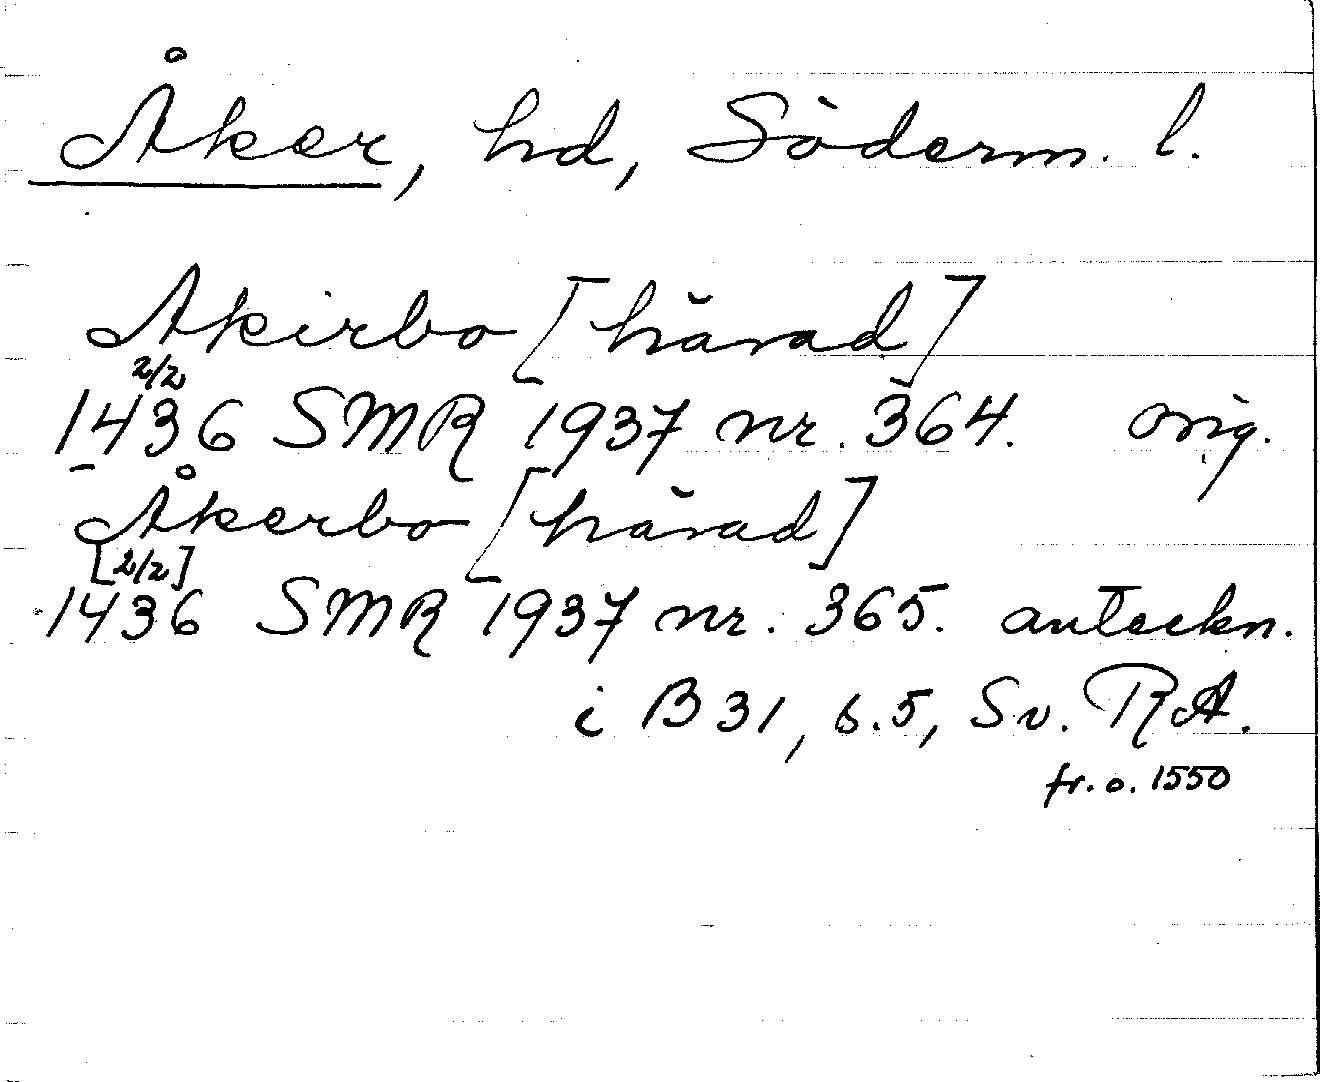 Åker, hd, Söderm. l.
Akirbo [härad]
2/2
1436 SMR 1937 nr. 364. orig.
Åkerbo [härad]
[2/2]
1436 SMR 1937 nr. 365. anteckn.
i B 31, s. 5, Sv. RA.
fr. o. 1550